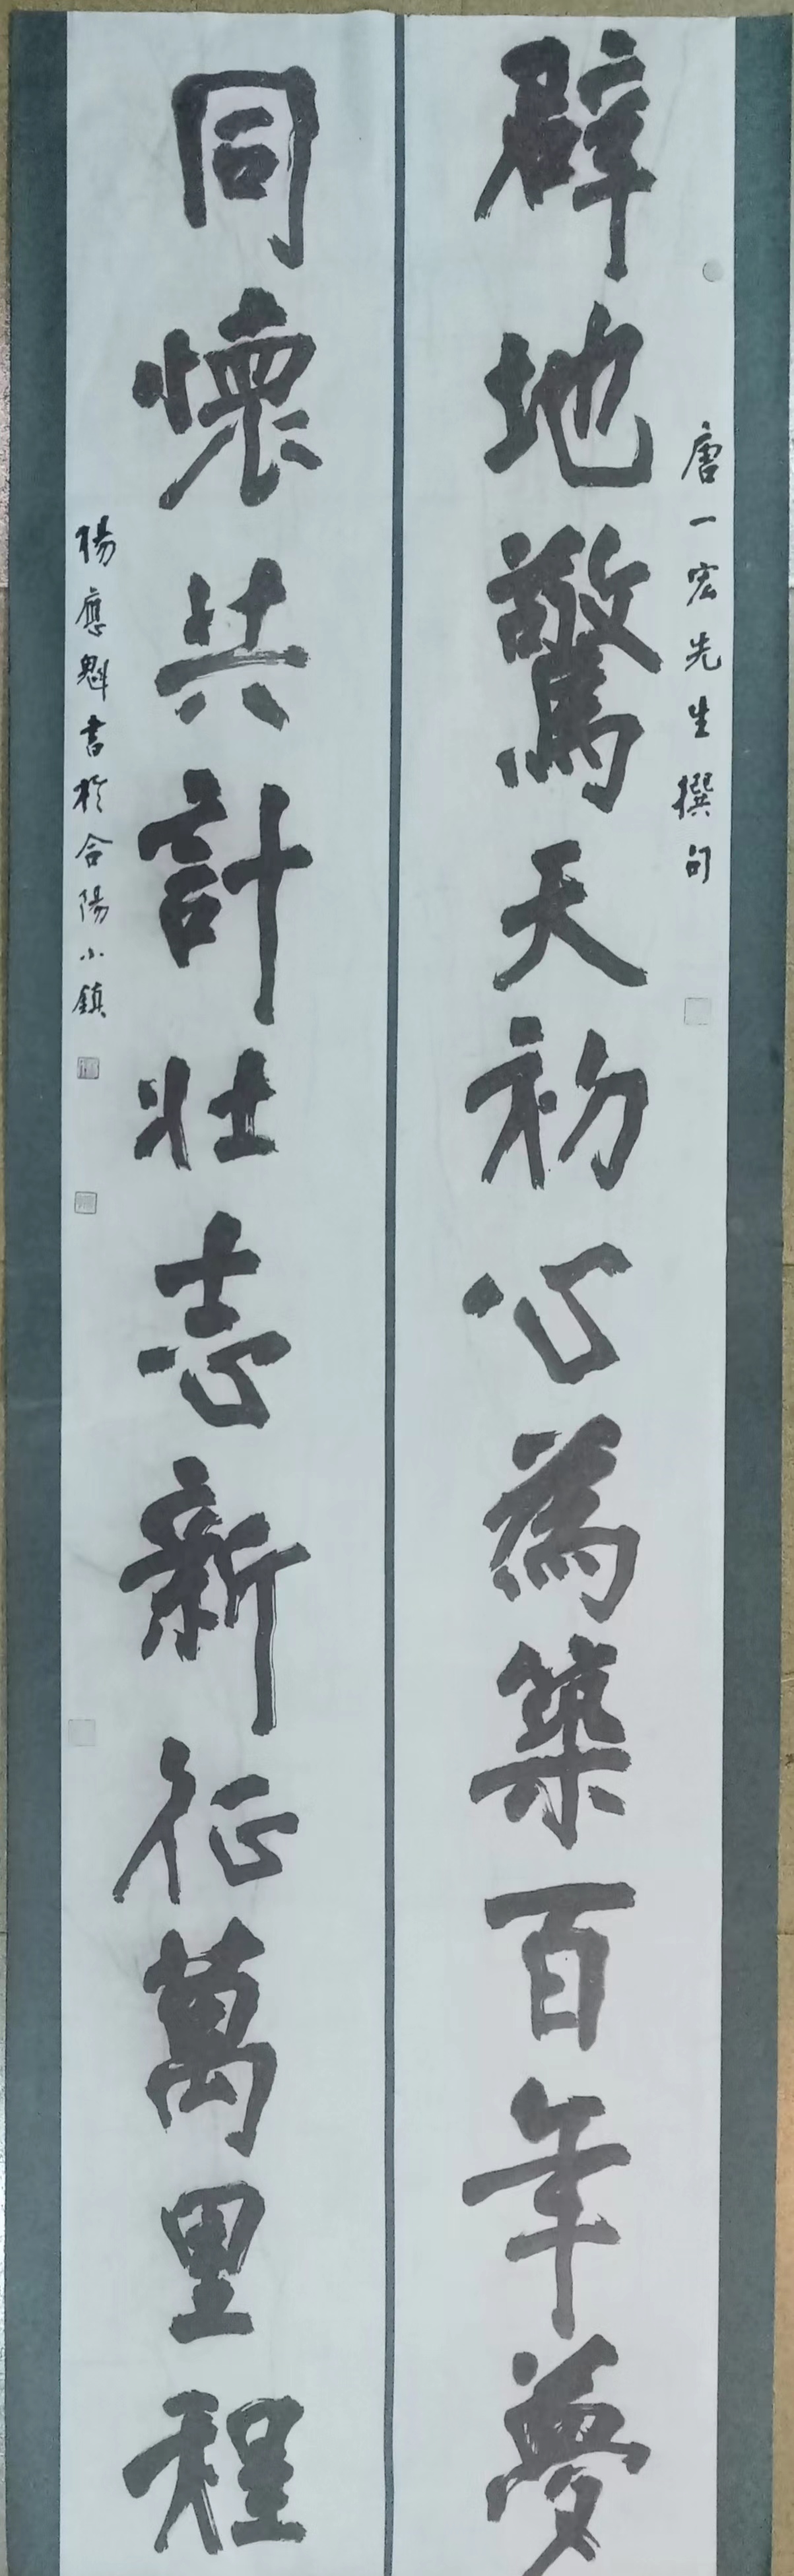 辟地驚天初心為築百年夢
唐一宏先生撰句
同懷共計壯志新征萬里程
楊應魁書於合陽小鎮